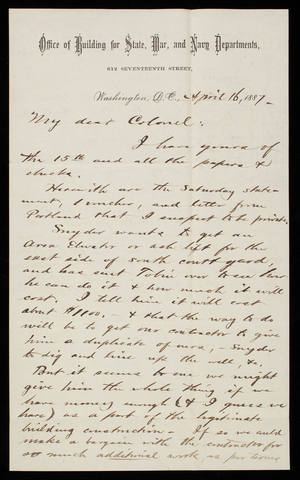 Office of Building for State, War, and Navy Departments,
612 SEVENTEENTH STREET,
Washington, D.C., April 16, 1887-
My dear Colonel:
I have yours of
the 15th and all the papers &
checks.
Herewith are the Saturday state-
ment, 1 voucher, and letter from
Portland that I suspect to be private.
Snyder wants to get an
Area Elevator or ash lift for the
east side of south court yard,
and has sent Tobin over to see how
he can do it & how much it will
cost. I tell him it will cost
about $1100. - & that the way to do
will be to get our contractor to give
him a duplicate of ours, - Snyder
to dig and line up the well, &c.
But it seems to me we might
give him the whole thing if we
have money enough (& I guess we
have) as a part of the legitimate
building construction - If so we could
make a bargain with the contractor for
so much additional work, as per terms